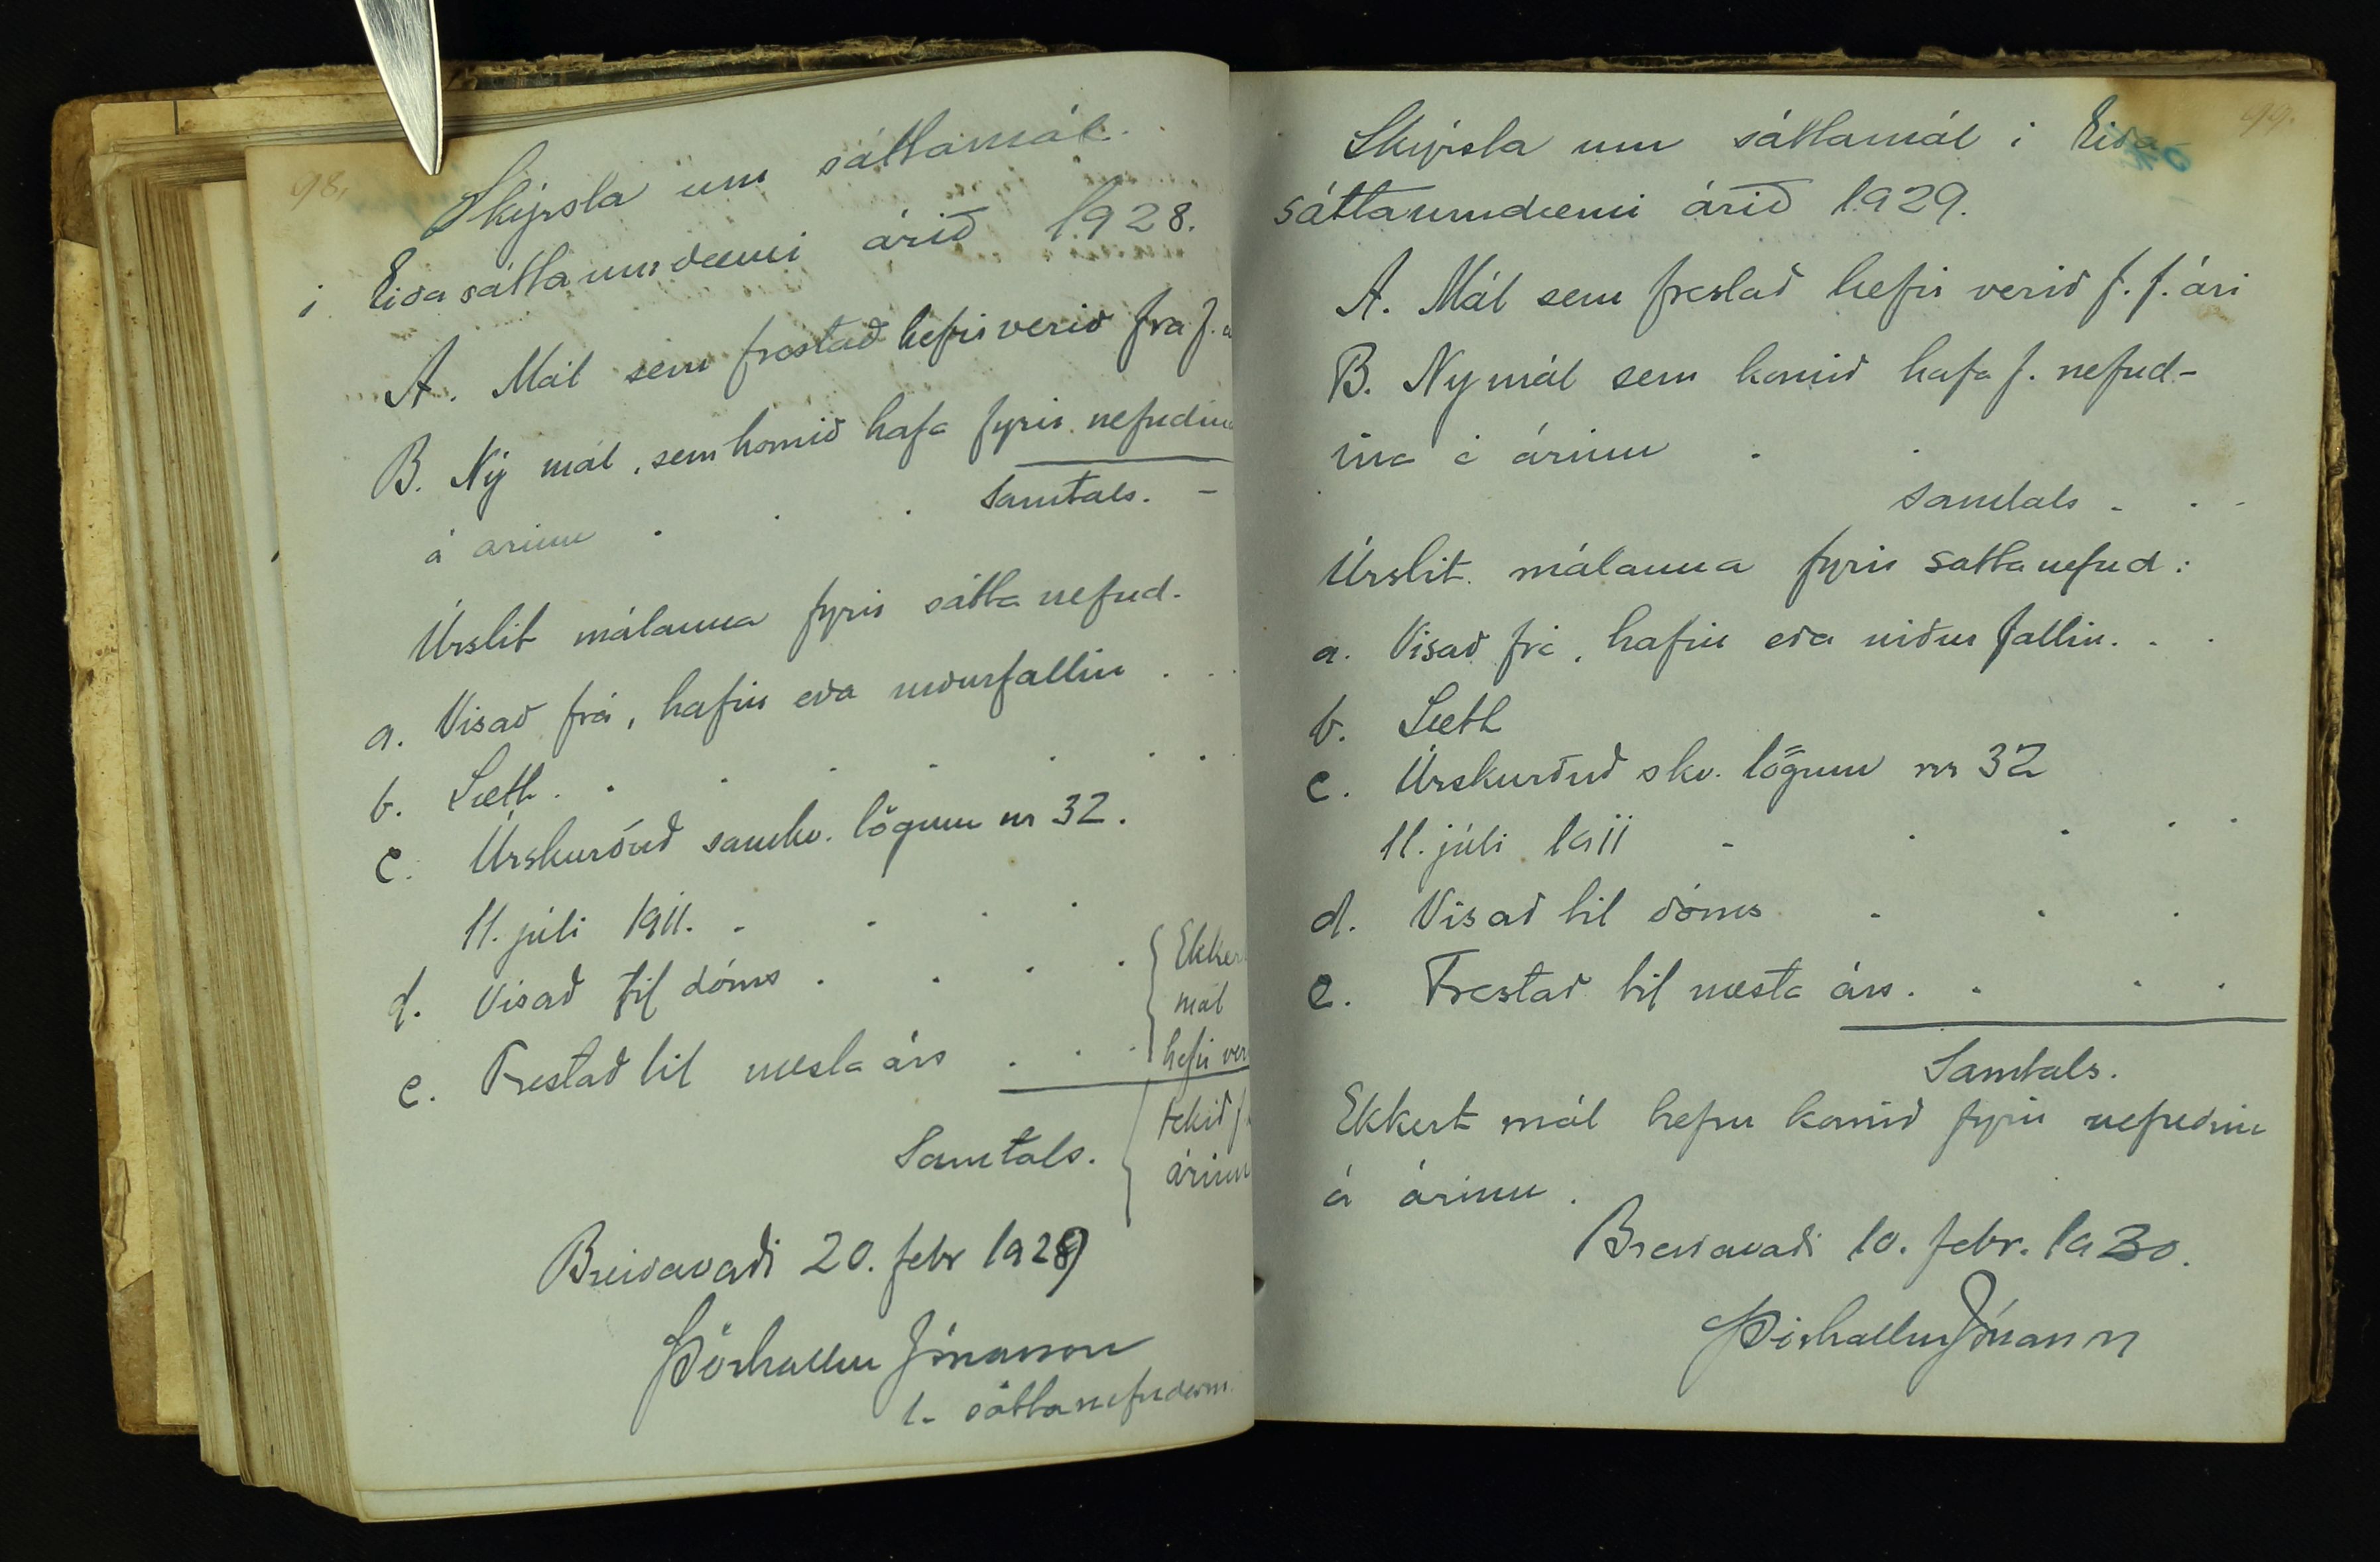 98.
Skýrsla um sáttamál
í Eiðasáttaumdæmi árið 1928.
A. Mál sem frestað hefir verið frá f.
B. Ný mál, sem komið hafa fyrir nefndina
á árinu . . .
Samtals. -
Úrslit málanna fyrir sáttanefnd.
a. Vísað frá, hafin eða niðurfallin . .
b. Sætt . . . . . . .
c. Úrskurðuð samkv. lögum nr 32.
11. júlí 1911. . . . .
d. Vísað til dóms . . . .
e. Frestað til næsta árs . . .
Samtals.
Ekker
mál
hefir ver
tekið f
árinu
Breiðavaði 20. febr 1929
Þórhallur Jónasson
1. sáttanefndarm.
99.
Skýrsla um sáttamál í Eiða-
sáttaumdæmi árið 1929.
A. Mál sem frestað hefir verið f. f. ári
B. Ný mál sem komið hafa f. nefnd-
ina á árinu . .
Samtals . . -
Úrslit málanna fyrir sáttanefnd:
a. Vísað frá, hafin eða niður fallin. . .
b. Sætt
c. Úrskurðuð skv. lögum nr 32
11. júlí 1911 - . . . .
d. Vísað til dóms . . .
e. Frestað til næsta árs. . . .
Samtals.
Ekkert mál hefur komið fyrir nefndina
á árinu.
Breiðavaði 10. febr. 1930.
Þórhallur Jónasson